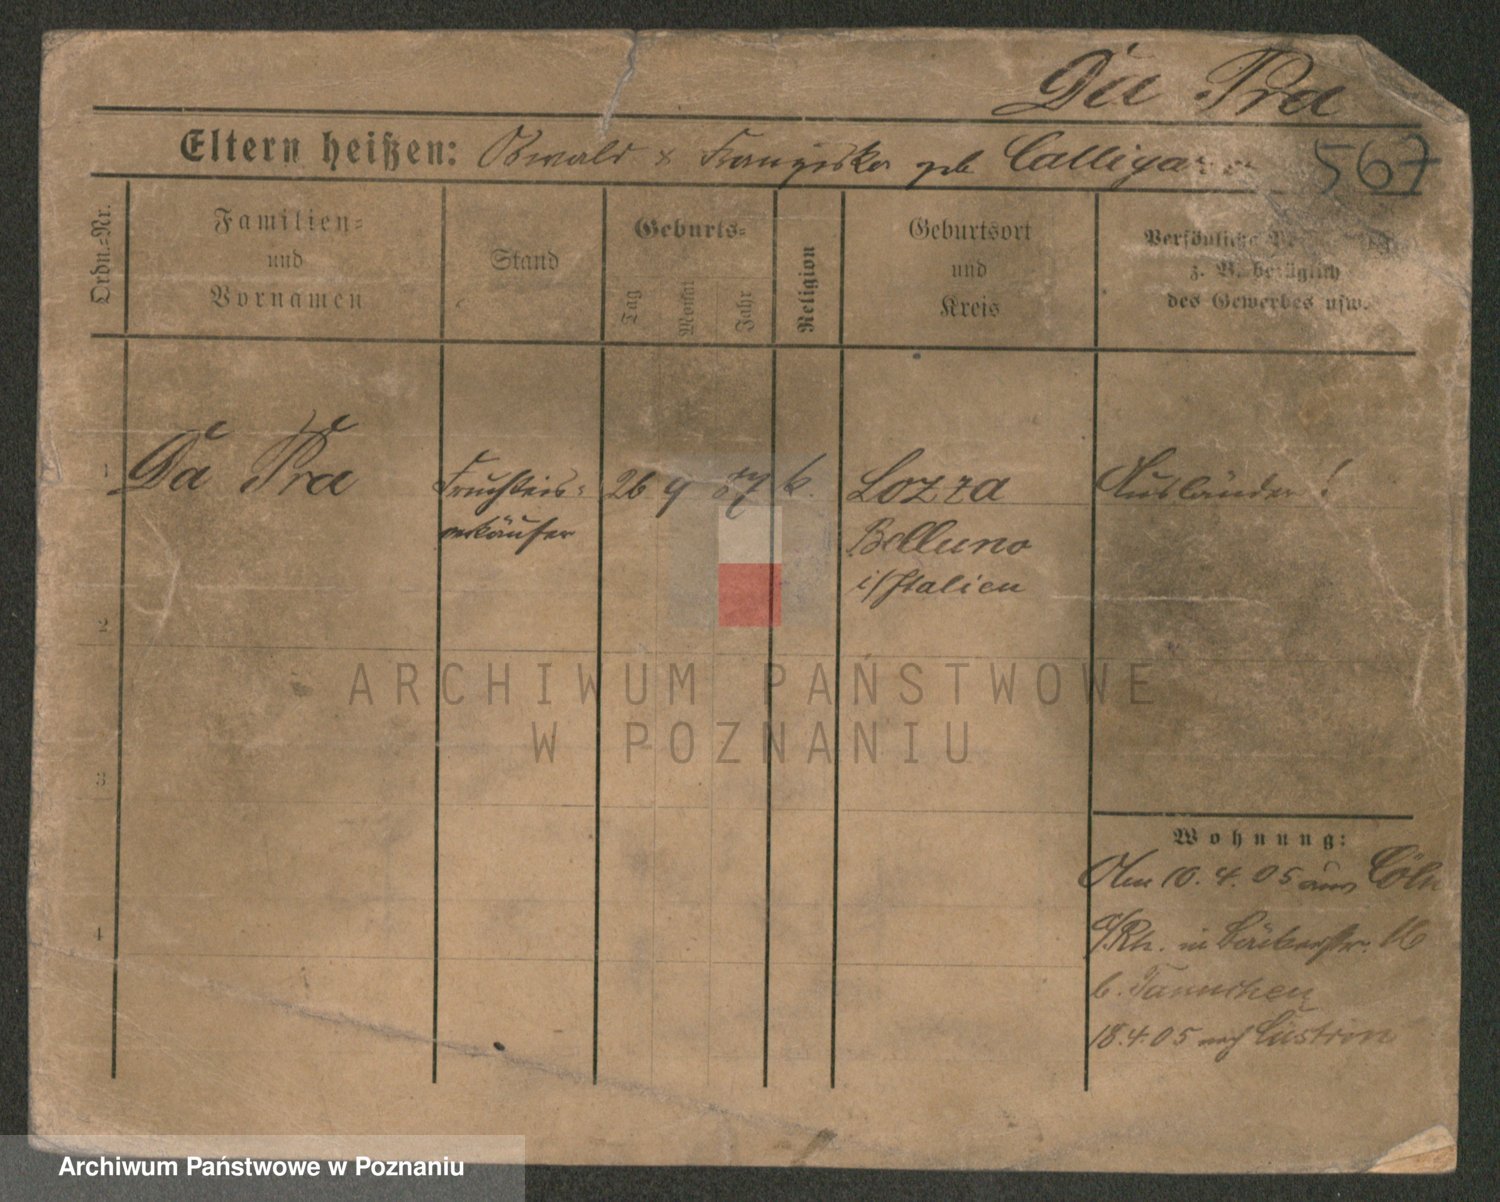 Da Pra
Eltern heißen: Oswald & Franziska geb Calligaro 567
Ordn.-Nr.
Familien-
und
Vornamen
Stand
Geburts-
Tag
Monat
Jahr
Religion
Geburtsort
und
Kreis
Persönliche
z. B. bezüglich
des Gewerbes usw.
1 Da Pra Fruchteis- 26 9 k. Lozza Ausländer!
verkäufer Belluno
i/Italien
2
3
4
Wohnung:
Am 10.4.05 aus Cöln
a/Rh. in 16
b.
18.4.05 nach Cüstrin
ARCHIWUM PAŃSTWOWE
W POZNANIU
Archiwum Państwowe w Poznaniu